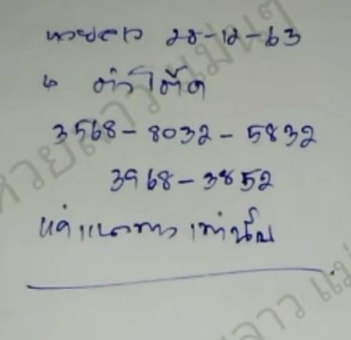 หวยลาว 28-12-63
4 ตัวโต๊ด
3568-8032-5832
3968-3852
แค่แนวทางเท่านั้น
หวยลาวแม่นๆ